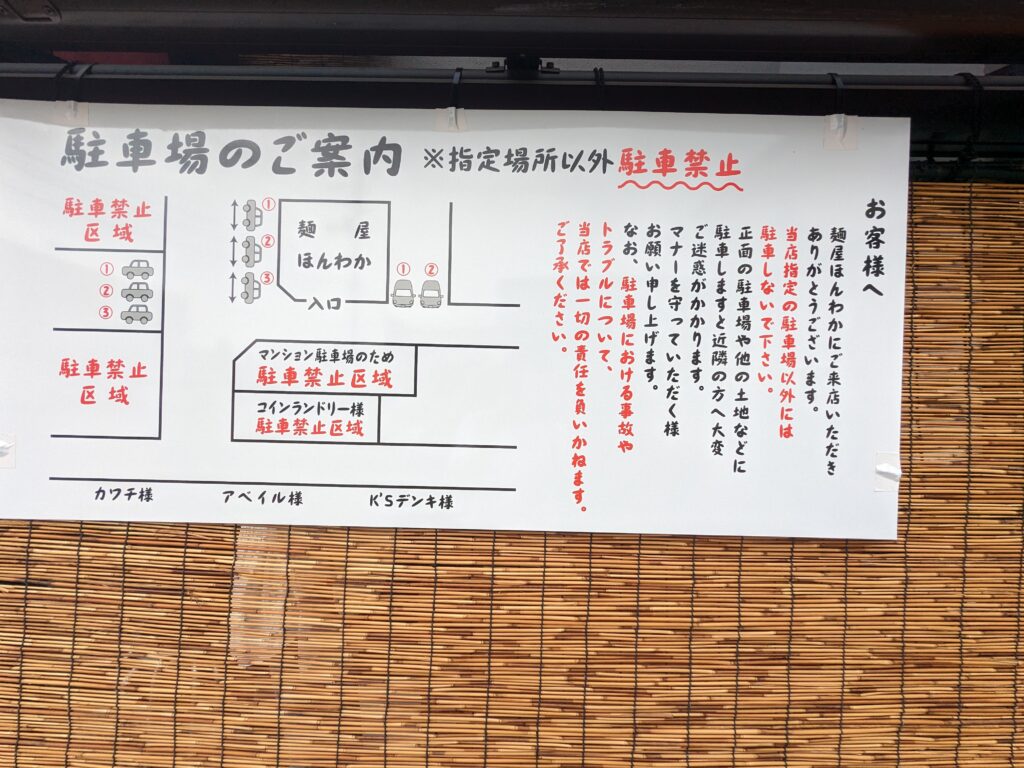 駐車場のご案内 ※指定場所以外駐車禁止
駐車禁止
区域
①
②
③
駐車禁止
区域
①
②
③
麺屋
ほんわか
入口
① ②
マンション駐車場のため
駐車禁止区域
コインランドリー様
駐車禁止区域
カワチ様 アベイル様 K'Sデンキ様
お客様へ
麺屋ほんわかにご来店いただき
ありがとうございます。
当店指定の駐車場以外には
駐車しないで下さい。
正面の駐車場や他の土地などに
駐車しますと近隣の方へ大変
ご迷惑がかかります。
マナーを守っていただく様
お願い申し上げます。
なお、駐車場における事故や
トラブルについて、
当店では一切の責任を負いかねます。
ご了承ください。